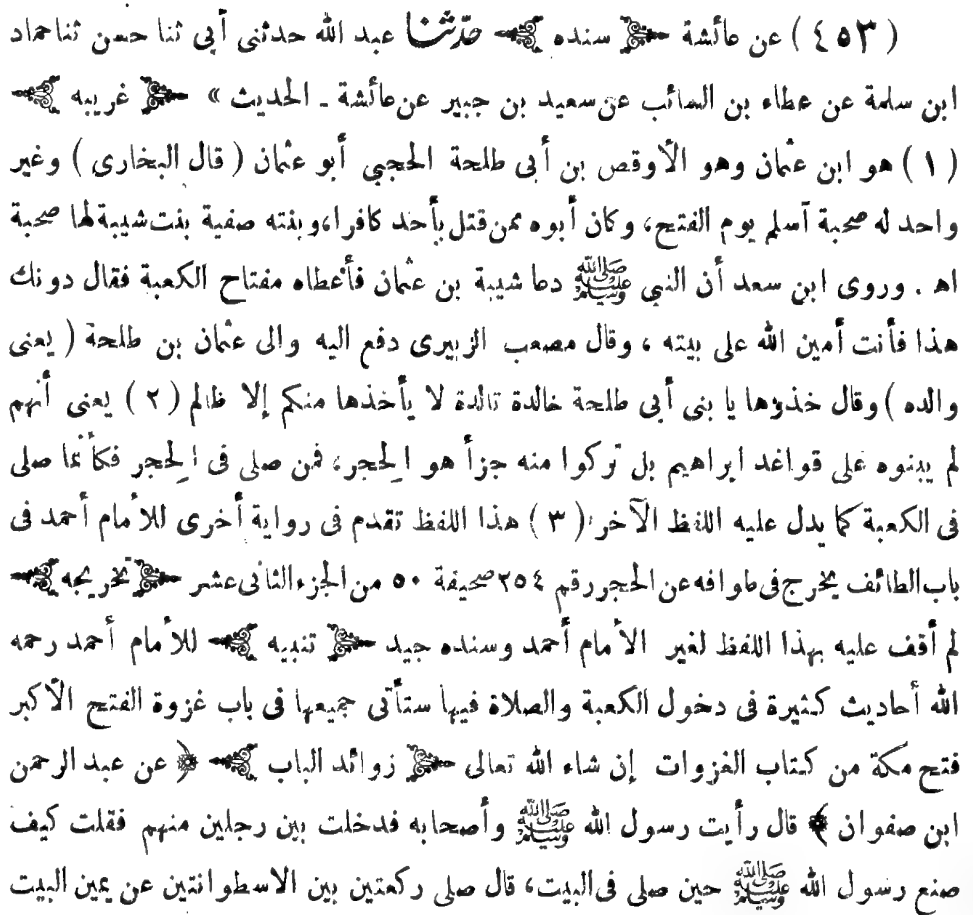 ( ٤٥٣ ) عن عائشة ﴿ سنده ﴾ حدثنا عبد الله حدثنى أبى ثنا حسن ثنا حماد
ابن سلمة عن عطاء بن السائب عن سعيد بن جبير عن عائشة ـ الحديث » ﴿ غريبه ﴾
( ١ ) هو ابن عثمان وهو الأوقص بن أبى طلحة الحجبي أبو عثمان ( قال البخارى ) وغير
واحد له صحبة أسلم يوم الفتح، وكان أبوه ممن قتل بأحد كافرا، وبنته صفية بنت شيبة لها صحبة
اهـ . وروى ابن سعد أن النبى ﷺ دعا شيبة بن عثمان فأعطاه مفتاح الكعبة فقال دونك
هذا فأنت أمين الله على بيته ، وقال مصعب الزبيرى دفع اليه والى عثمان بن طلحة ( يعنى
والده ) وقال خذوها يا بنى أبى طلحة خالدة تالدة لا يأخذها منكم إلا ظالم ( ٢ ) يعنى أنهم
لم يبنوه على قواعد ابراهيم بل تركوا منه جزأ هو الحِجر، فمن صلى فى الحِجر فكأنما صلى
فى الكعبة كما يدل عليه اللفظ الآخر ( ٣ ) هذا اللفظ تقدم فى رواية أخرى للأمام أحمد فى
باب الطائف يخرج فى طوافه عن الحجر رقم ٢٥٤ صحيفة ٥٠ من الجزء الثانى عشر ﴿ تخريجه ﴾
لم أقف عليه بهذا اللفظ لغير الأمام أحمد وسنده جيد ﴿ تنبيه ﴾ للأمام أحمد رحمه
الله أحاديث كثيرة فى دخول الكعبة والصلاة فيها ستأتى جميعها فى باب غزوة الفتح الأكبر
فتح مكة من كتاب الغزوات إن شاء الله تعالى ﴿ زوائد الباب ﴾ ﴿ عن عبد الرحمن
ابن صفوان ﴾ قال رأيت رسول الله ﷺ وأصحابه فدخلت بين رجلين منهم فقلت كيف
صنع رسول الله ﷺ حين صلى فى البيت، قال صلى ركعتين بين الاسطوانتين عن يمين البيت